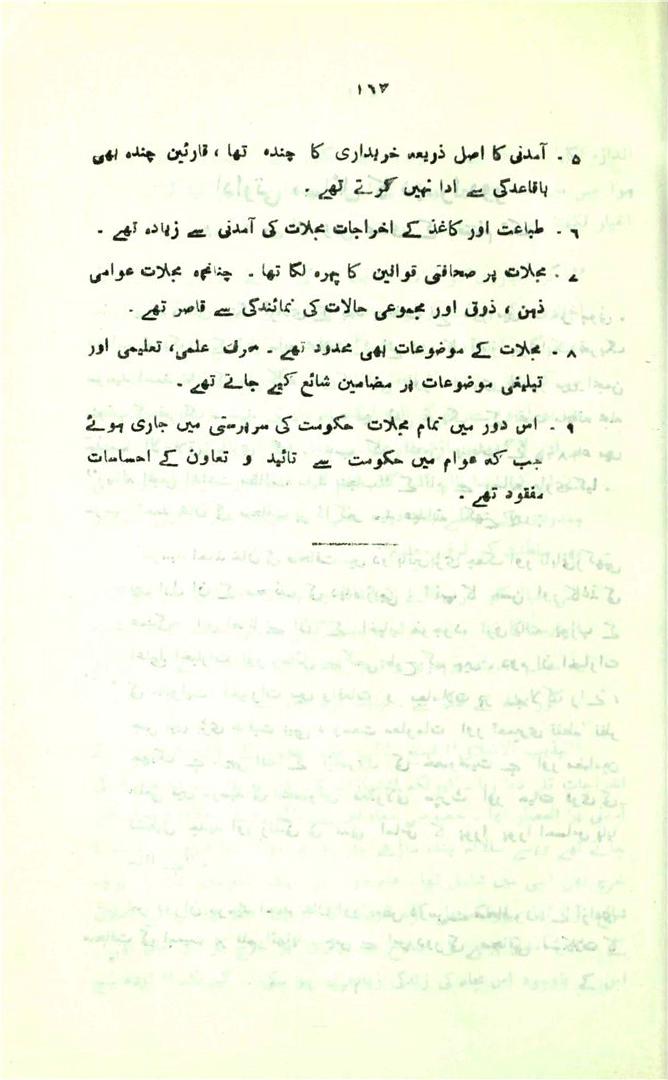 ۱۶۳
۵ ۔ آمدنی کا اصل ذریعہ خریداری کا چندہ تھا ، قارئین چندہ بھی
باقاعدگی سے ادا نہیں کرتے تھے ۔
۶ ۔ طباعت اور کاغذ کے اخراجات مجلات کی آمدنی سے زیادہ تھے ۔
۷ ۔ مجلات پر صحافتی قوانین کا پہرہ لگا تھا ۔ چنانچہ مجلات عوامی
ذہن ، ذوق اور مجموعی حالات کی نمائندگی سے قاصر تھے ۔
۸ ۔ مجلات کے موضوعات بھی محدود تھے ۔ صرف علمی، تعلیمی اور
تبلیغی موضوعات پر مضامین شائع کیے جاتے تھے ۔
۹ ۔ اس دور میں تمام مجلات حکومت کی سرپرستی میں جاری ہوئے
جب کہ عوام میں حکومت سے تائید و تعاون کے احساسات
مفقود تھے ۔